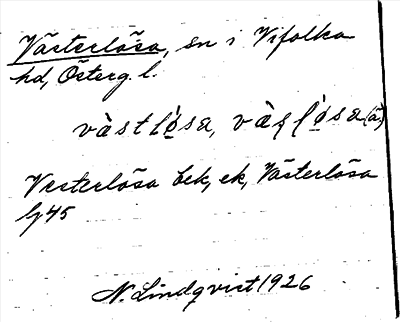 Västerlösa, sn i Vifolka
hd, Österg. l.
västlọ̀sa, vàşlọ̀sa (ä,)
Vesterlösa bek, ek, Västerlösa
Gj45
N. Lindqvist 1926